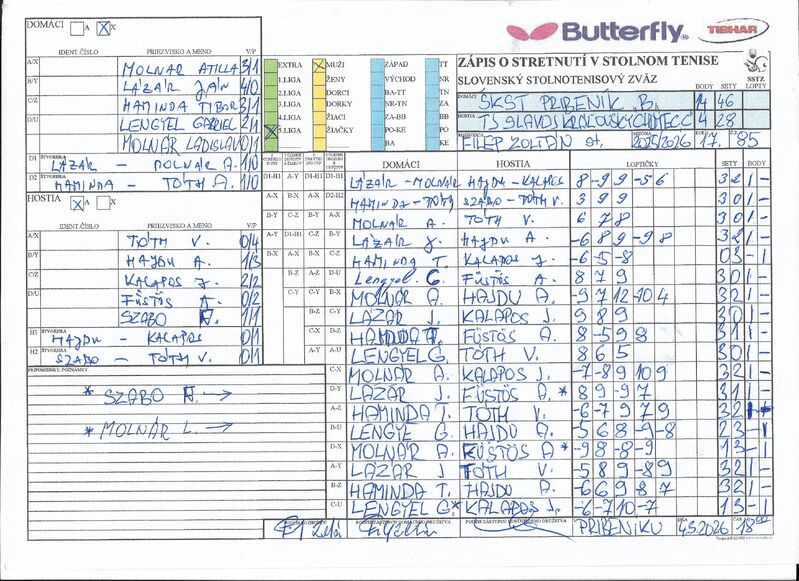 DOMÁCI A X
Butterfly
TIBHAR
IDENT.ČÍSLO PRIEZVISKO A MENO V/P
A/X MOLNÁR ATILLA 3/1
B/Y LÁZÁR JÁN 4/0
C/Z HAMINDA TIBOR 3/1
D/U LENGYEL GABRIEL 2/1
MOLNÁR LADISLAV 0/1
D1 ŠTVORHRA LÁZÁR - MOLNÁR A. 1/0
D2 ŠTVORHRA HAMINDA - TÓTH A. 1/0
EXTRA
1.LIGA
2.LIGA
3.LIGA
4.LIGA
5.LIGA
MUŽI
ŽENY
DORCI
DORKY
ŽIACI
ŽIAČKY
ZÁPAD
VÝCHOD
BA-TT
NR-TN
ZA-BB
PO-KE
TT
NR
TN
ZA
BB
PO
KE
ZÁPIS O STRETNUTÍ V STOLNOM TENISE
SLOVENSKÝ STOLNOTENISOVÝ ZVÄZ
SSTZ
BODY SETY LOPTY
DOMÁCI ŠKST PRIBENÍK B. 14 46
HOSTIA TJ SLAVOJ KRÁĽOVSKÝ CHLMEC C 4 28
FILEP ZOLTÁN st. SEZÓNA 2025/2026 KOLO 17. Č.Z. 85
HOSTIA X X
IDENT.ČÍSLO PRIEZVISKO A MENO V/P
A/X TÓTH V. 0/4
B/Y HAJDU A. 1/3
C/Z KALAPOS J. 2/2
D/U FÜSTÖS A. 0/2
SZABO 1/1
H1 ŠTVORHRA HAJDU - KALAPOS 0/1
H2 ŠTVORHRA SZABO - TÓTH V. 0/1
PRIPOMIENKY, POZNÁMKY
* SZABO →
* MOLNÁR L. →
DOMÁCI HOSTIA LOPTIČKY SETY BODY
D1-H1 LÁZÁR - MOLNÁR HAJDU - KALAPOS 8 -9 9 -5 6 3 2 1 -
D2-H2 HAMINDA - TÓTH SZABO - TÓTH V. 3 9 9 3 0 1 -
MOLNÁR A. TÓTH V. 6 7 8 3 0 1 -
LÁZÁR J. HAJDU A. -6 8 9 -9 8 3 2 1 -
HAMINDA T. KALAPOS J. -6 -5 -8 0 3 - 1
D-U Lengyel G. FÜSTÖS A. 8 7 9 3 0 1 -
MOLNÁR A. HAJDU A. -9 7 12 -10 4 3 2 1 -
LÁZÁR J. KALAPOS J. 9 8 9 3 0 1 -
HAMINDA T. FÜSTÖS A. 8 -5 9 8 3 1 1 -
LENGYEL G. TÓTH V. 8 6 5 3 0 1 -
C-X MOLNÁR A. KALAPOS J. -7 -8 9 10 9 3 2 1 -
D-Y LÁZÁR J. FÜSTÖS A. * 8 9 -9 7 3 1 1 -
A-Z HAMINDA T. TÓTH V. -6 -7 9 7 9 3 2
B-U LENGYEL G. HAJDU A. -5 6 8 -9 -8 2 3 - 1
D-X MOLNÁR A. FÜSTÖS A * -9 8 -8 -9 1 3 - 1
A-Y LÁZÁR J TÓTH V. -5 8 9 -8 9 3 2 1 -
B-Z HAMINDA T. HAJDU A. -6 6 9 8 7 3 2 1 -
C-U LENGYEL G* KALAPOS J. -6 -7 10 -7 1 3 - 1
PODPIS ZÁSTUPCU DOMÁCEHO DRUŽSTVA
PODPIS ZÁSTUPCU HOSŤUJÚCEHO DRUŽSTVA
PRIBENÍKU DŇA 4.3.2026 ČAS 18⁰⁰